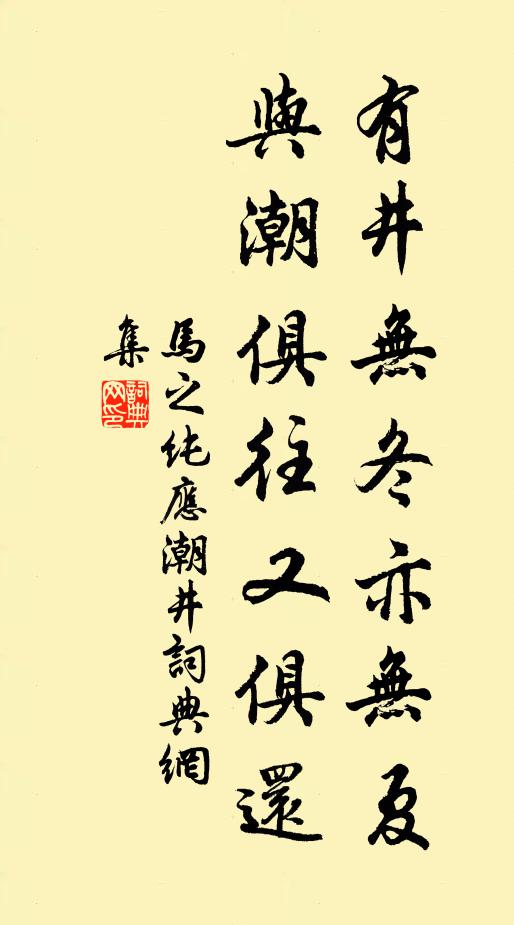 有井無冬亦無夏
與潮俱往又俱還
馬之純應潮井詞典網
集
詞典
网印